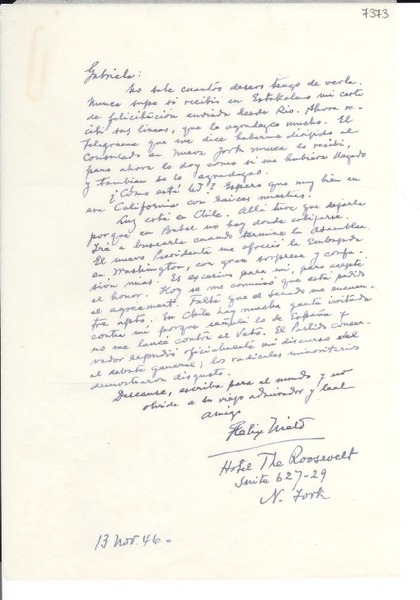 7373
Gabriela:
No sabe cuantos deseos tengo de verla.
Nunca supe si recibió en Estokolmo mi carta
de felicitación enviada desde Rio. Ahora re-
cibí sus lineas, que le agradezco mucho. El
telegrama que me dice haberme dirigido al
Consulado en Nueva York nunca lo recibí,
pero ahora lo doy como si me hubiera llegado
y tambien se lo agradezco.
¿Cómo está Ud? Espero que muy bien en
esa California con raices nuestras.
Luz está en Chile. Allí tuve que dejarla
porque en Babel no hay donde cobijarse.
Iré a buscarla cuando termine la Asamblea.
El nuevo Presidente me ofreció la Embajada
en Washington, con gran sorpresa y confu-
sion mias. Es excesivo para mi, pero acepté
el honor. Hoy se me comunicó que está pedido
el agreement. Falta que el Senado me encuen-
tre apto. En Chile hay mucha gente irritada
contra mi porque señalé lo de España y
no me lancé contra el Veto. El Partido Conser-
vador respondió oficialmente mi discurso del
al debate general; los radicales minoritarios
demostraron disgusto.
Descanse, escriba para el mundo y no
olvide a su viejo admirador y leal
amigo
Félix Nieto
Hotel The Roosevelt
Suite 627-29
N. York
13 Nov. 46.